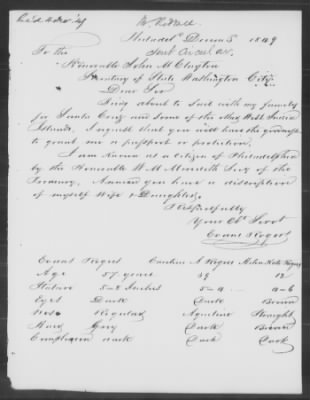 Philadelp Decem 5 1849
To the
Honorable John M Clayton
Secretary of State Washington City
Dear Sir
Being about to Sail with my family
for Santa Cruz and some of the other West India
Islands. I request that you will have the goodness
to grant me a passport or protection.
I am known as a citizen of Philadelphia
by the Honorable W M Meredith Secy of the
Treasury. Annexed you have a description
of myself Wife & Daughter.
Respectfully
Your Obt Servt
Evans Rogers
Evans Rogers Caroline A Rogers Helen Kate Rogers
Age 57 years 12
Stature 5-2 Inches 5-2
Eyes Dark Dark Brown
Nose Regular Aquiline Straight
Hair Grey Dark Brown
Complexion Dark Dark Dark